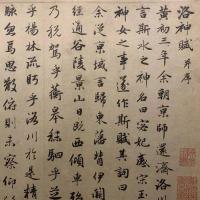 洛神賦 并序
黄初三年余朝京師還濟洛川
言斯水之神名曰宓妃感宋玉
神女之事遂作斯賦其詞曰
余從京域言歸東藩背伊闕
經通谷陵景山日既西傾車殆
乃稅駕乎蘅皋秣駟乎芝
乎楊林流眄乎洛川於是精
忽焉思散俯則未察仰